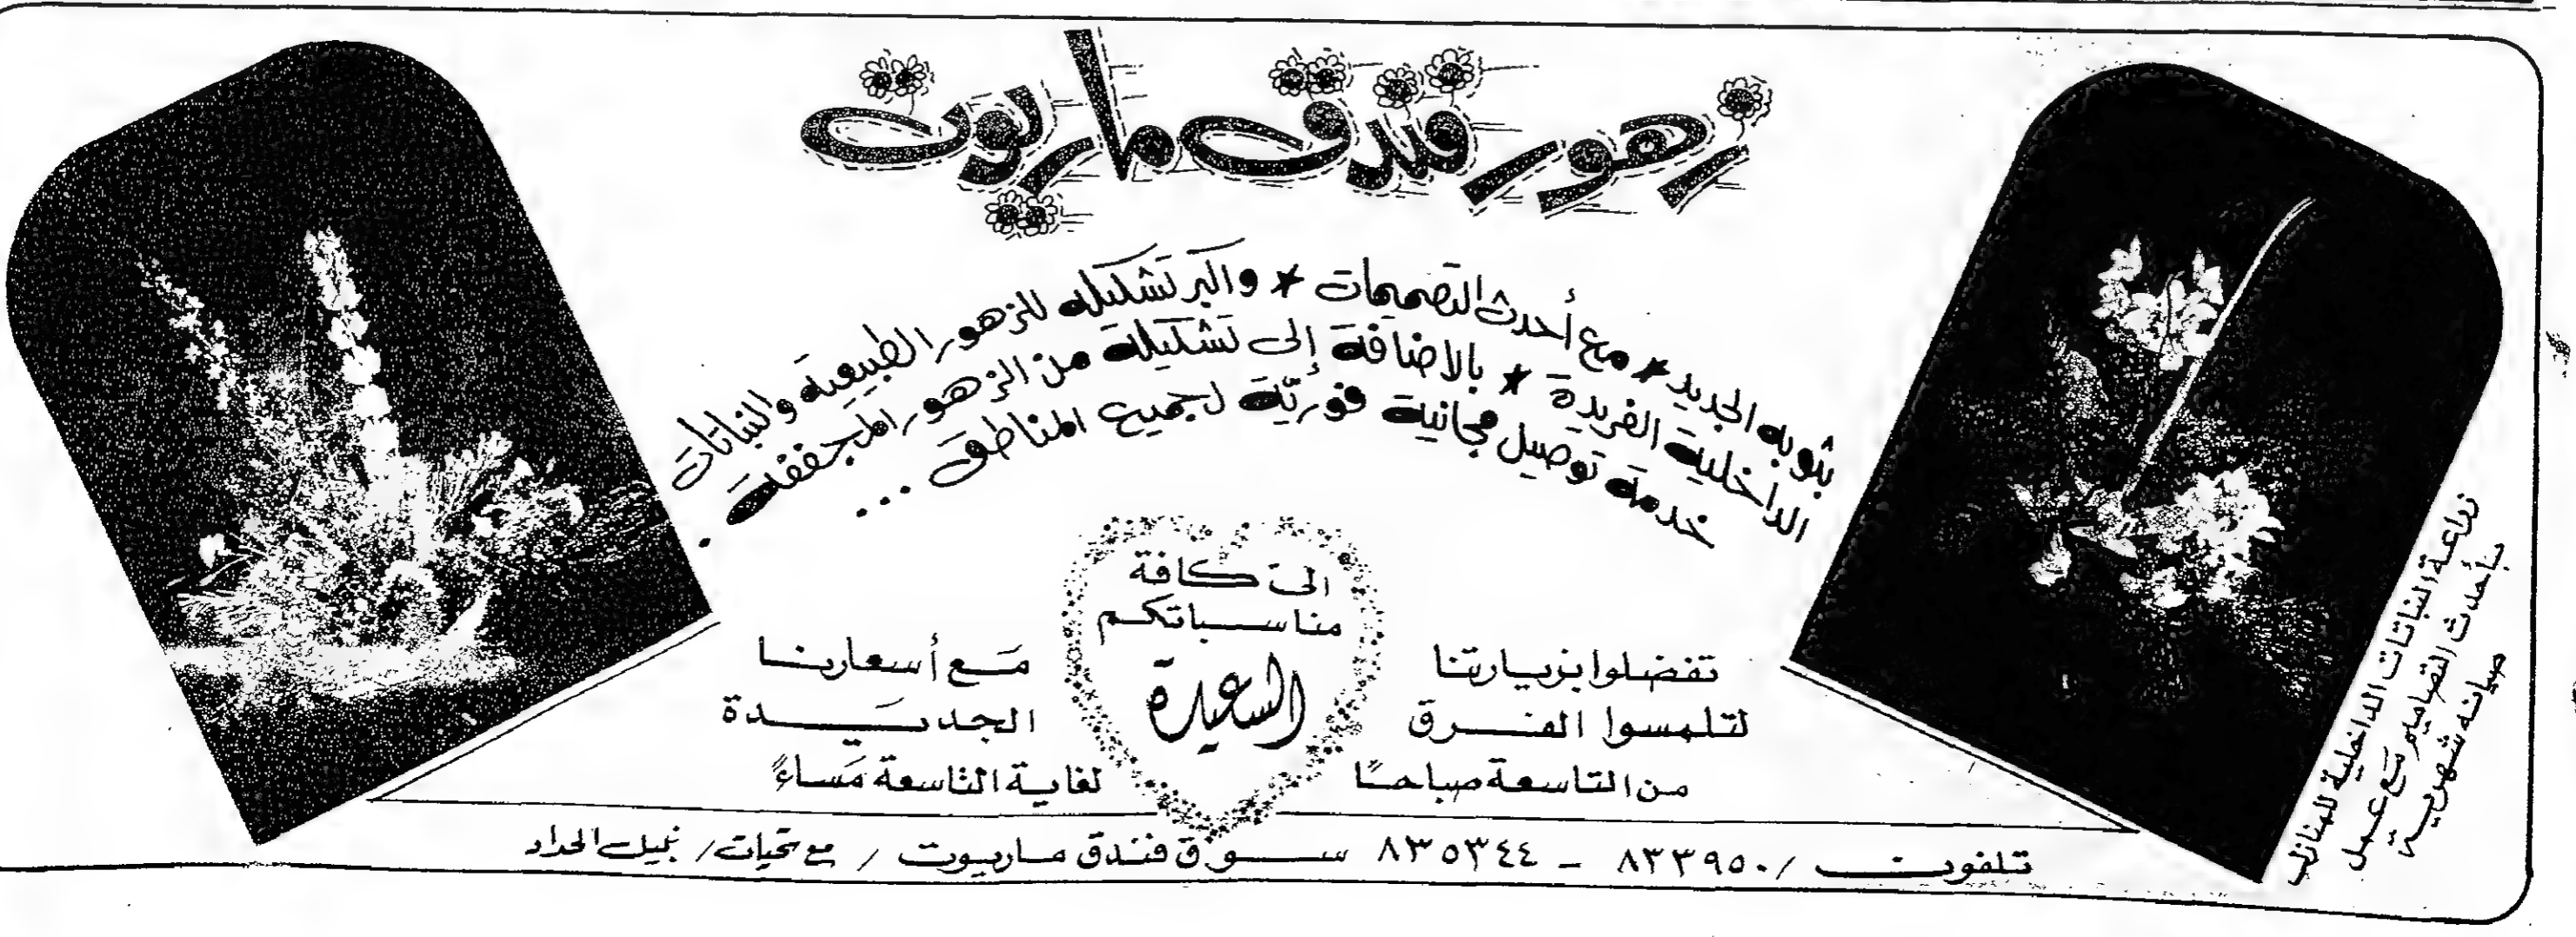 زهور فندق ماريوت
بثوبه الجديد * مع أحدث التصميمات * واكبر تشكيله للزهور الطبيعية والنباتات
الداخلية الفريدة * بالاضافة إلى تشكيلة من الزهور المجففة .
خدمة توصيل مجانية فوريّة لجميع المناطق ...
الى كافة
مناسباتكم
السعيدة
تفضلوا بزيارتنا
لتلمسوا الفرق
من التاسعة صباحًا
مع أسعارنا
الجديدة
لغاية التاسعة مساءً
زراعة النباتات الداخلية للمنازل
بأحدث التصاميم مع عمل
صيانه شهرية
تلفون / ٨٣٣٩٥٠ - ٨٣٥٣٤٤ سوق فندق ماريوت / مع تحيات / نبيل الحداد